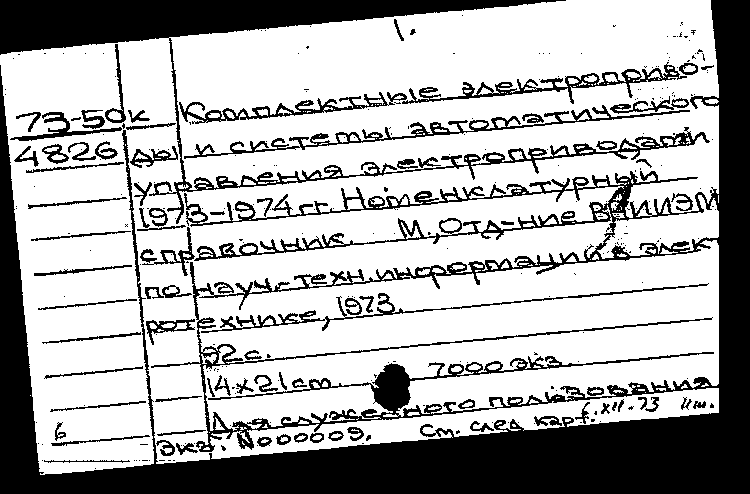 1.
73-50к Комплектные электроприво-
4826 ды и системы автоматического
управления электроприводами
1973-1974 гг. Номенклатурный
справочник. М., Отд-ние ВНИИЭМ
по науч.-техн. информации в элект
ротехнике, 1973.
92 с.
14х21 cm. 7000 экз.
Для служебного пользования
6 экз. N000009. См. след карт. 6.XII.73